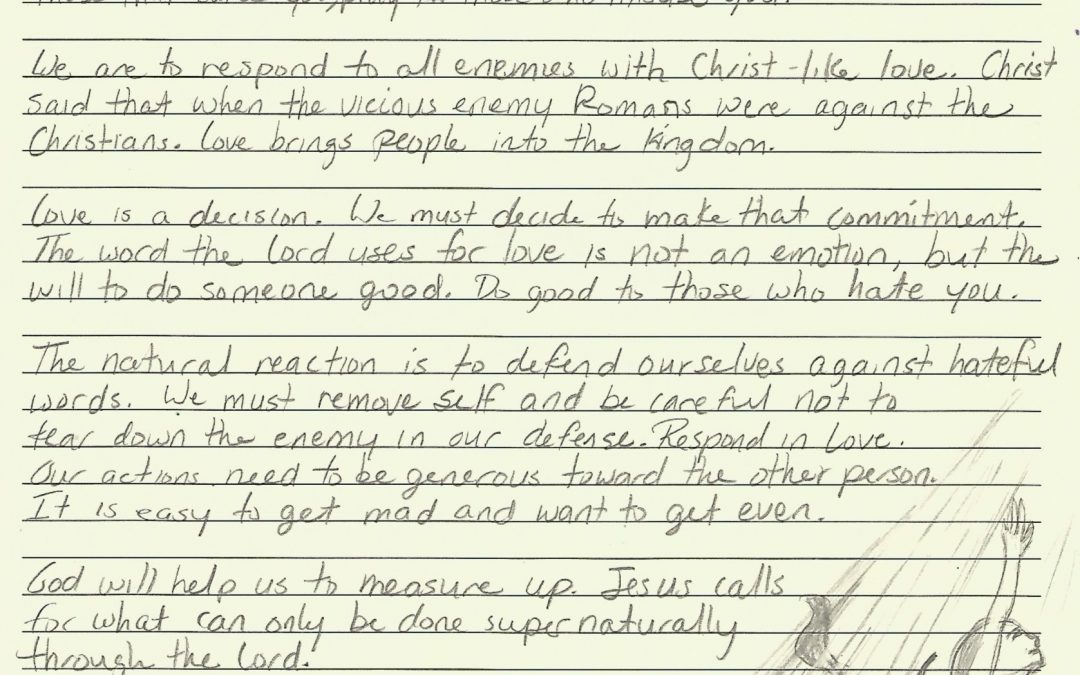 those who misuse you.
We are to respond to all enemies with Christ-like love. Christ
said that when the vicious enemy Romans were against the
Christians. Love brings people into the Kingdom.
Love is a decision. We must decide to make that commitment.
The word the Lord uses for love is not an emotion, but the
will to do someone good. Do good to those who hate you.
The natural reaction is to defend ourselves against hateful
words. We must remove self and be careful not to
tear down the enemy in our defense. Respond in Love.
Our actions need to be generous toward the other person.
It is easy to get mad and want to get even.
God will help us to measure up. Jesus calls
for what can only be done supernaturally
through the Lord.